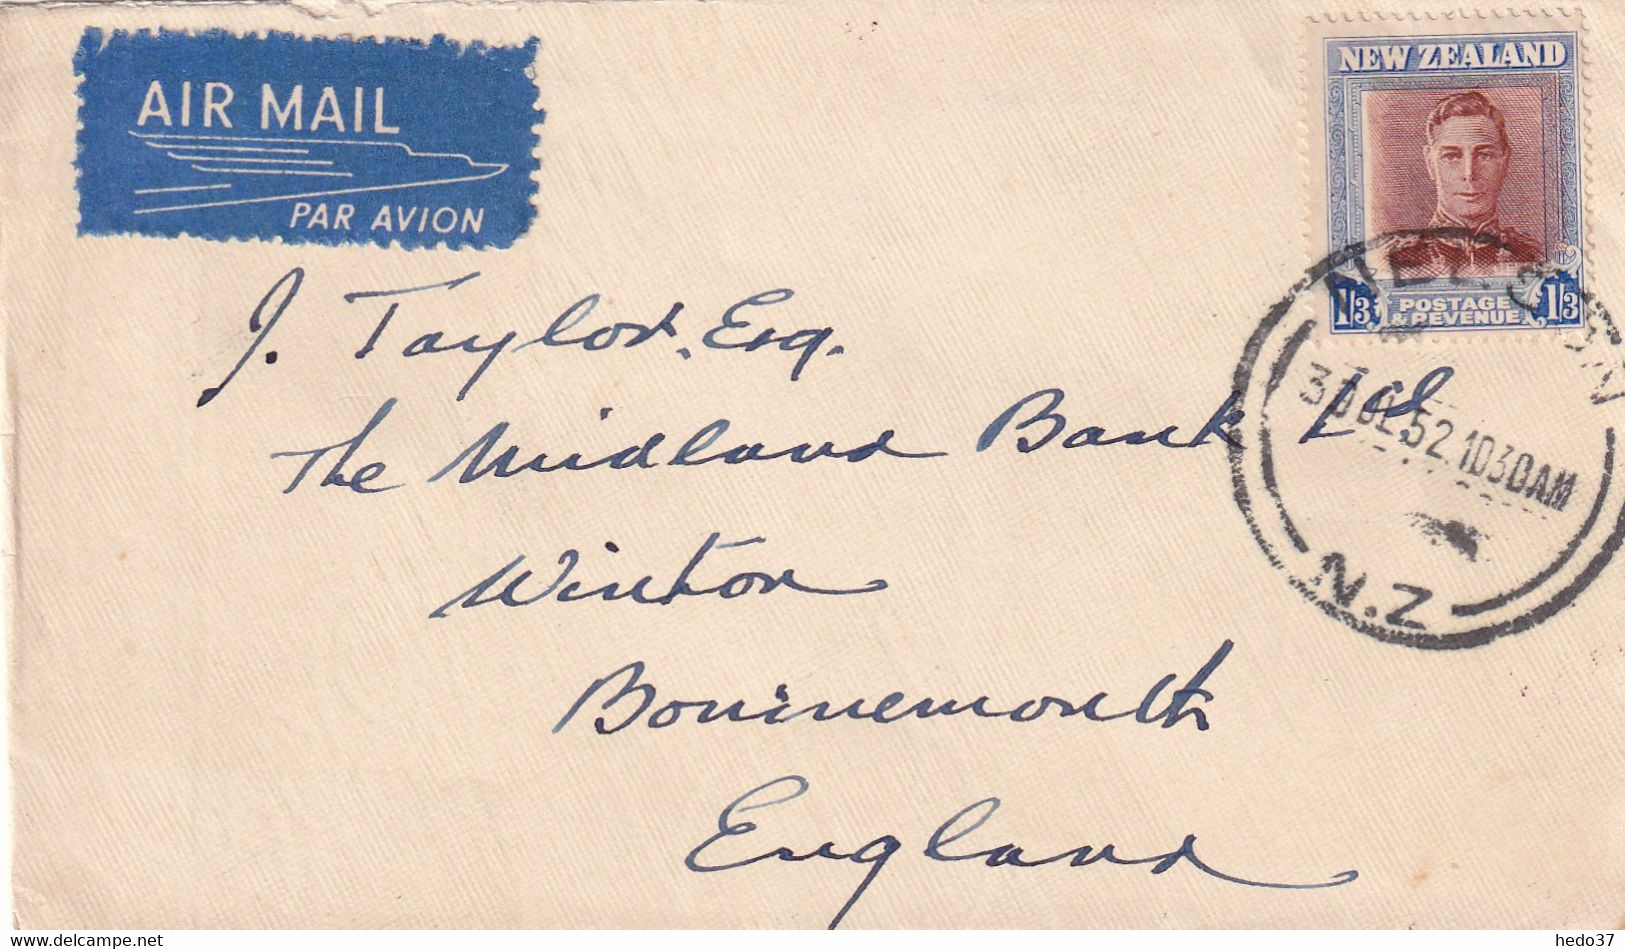 AIR MAIL
PAR AVION
NEW ZEALAND
1/3 POSTAGE & REVENUE 1/3
NELSON
3 JUL 52 1030AM
N.Z
J. Taylor. Esq.
The Midland Bank Ltd.
Winton
Bournemouth
England
hedo37